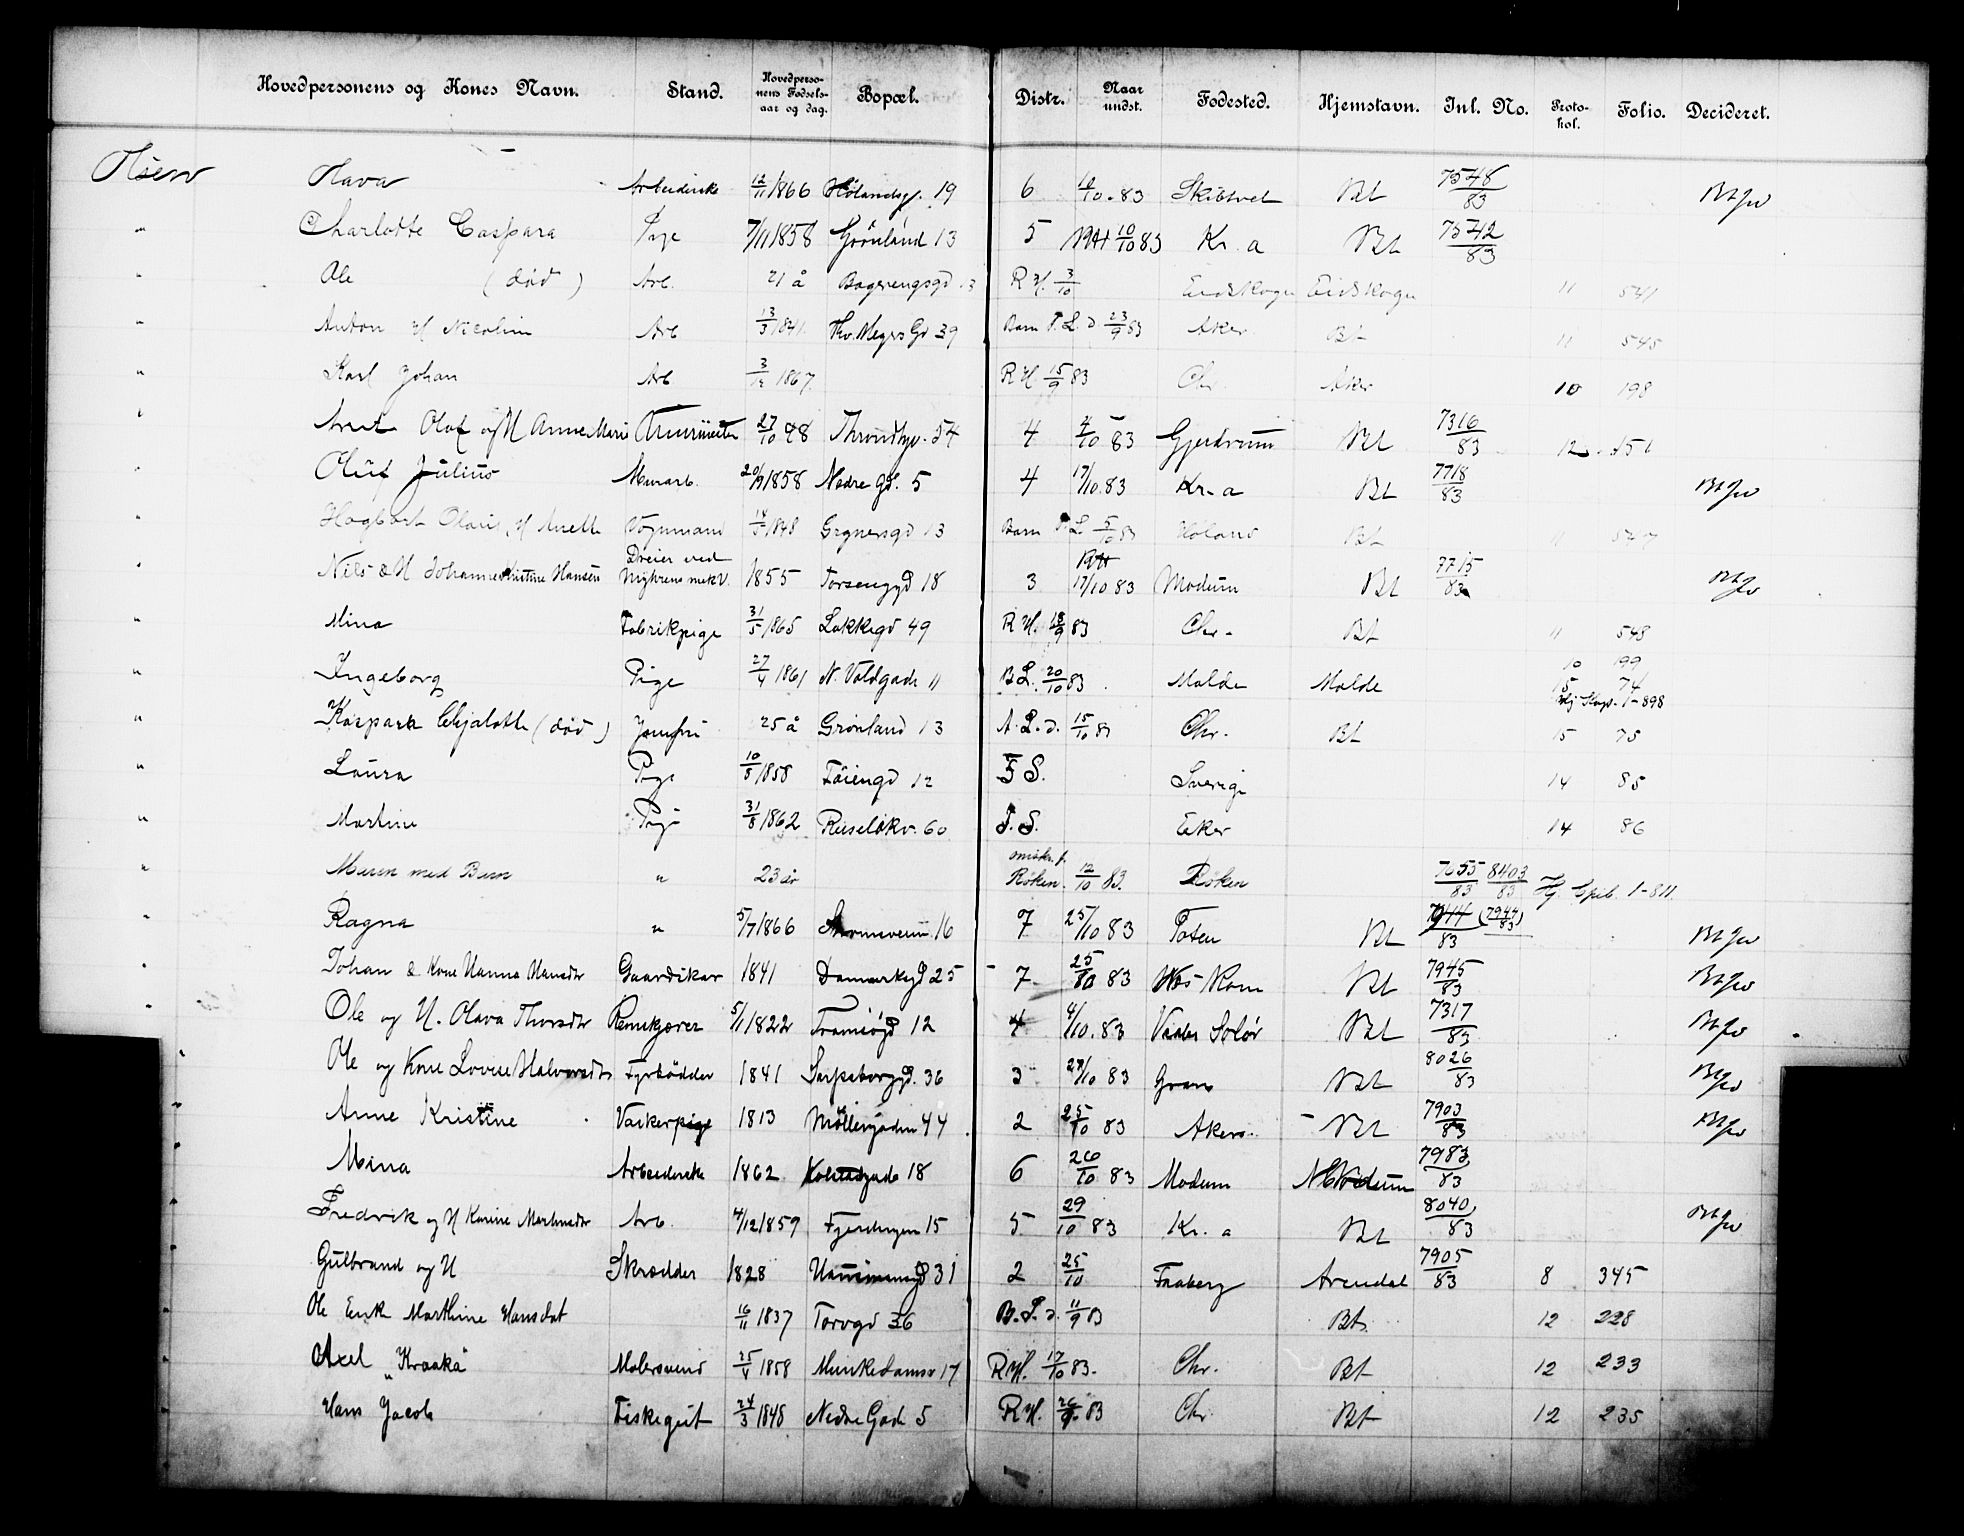 Hovedpersonens og Kones Navn. Stand. Hovedpersonens Fødselsaar og dag. Bopæl. Distr. Naar undst. Fødested. Hjemstavn. Inl. No. Protokol. Folio. Decideret.
Olsen Olava Arbeiderske 12/11 1866 Hølandsg. 19 6 /10 . 83 Skibtvet Bt 7548/83
" Charlotte Caspara Pige 7/11 1858 Grønland 13 5 10/10 83 Kr. a Bt 7542/83
" Ole (død) Arb. 21 å 13 R H. 3/10 Eidskogn Eidskogn 11 541
" Anton H Nicoline Arb 13/3 1841 Thv. Meyers Gd 39 Barn 23/9 83 Aker Bt 11 545
" Karl Johan Arb 3/12 1867. R H. 15/9 83 Chr. Aker 10 198
" Olaf og H Anne Marie 27/10 48 Throndhjv. 54 4 4/10 83 Gjerdrum Bt 7316/83 12 451
" Oluf Julius Murarb. 20/9 1858 Nedre gd. 5 4 17/10. 83 Kr. a Bt 7718/83
" Hagbart Olaus, H Anette Vognmand 1848 13 Barn 5/10 83 Høland Bt 11 547
" Nils & H Johanne Kristine Hansen Dreier ved Mek V. 1855 18 3 17/10 83 Modum Bt 7715/83
" Mina Fabrikpige 31/5 1865 Lakkegd 49 R H. 18/9 83 Chr. Bt 11 548
" Ingeborg Pige 27/4 1861 N. Voldgade 11 B L. 20/10 83 Molde Molde 10 199
15 74
1-898
" Kaspara Chjalotte (død) Jomfru 25 å Grønland 13 A. L. d. 15/10 83 Chr. Bt 15 75
" Laura Pige 10/8 1858 Føiengd 12 F S. Sverige 14 85
" Martine Pige 31/8 1862 Ruseløkv. 60 F. S. Eker 14 86
" Maren med Barn " 23 år Røken. 12/10 83. Røken 7655/83 8403/83 1-811
" Ragna " 5/7 1866 16 7 25/10 83 Toten Bt 7944/83
" Johan & Kone Hanna Hansdtr Gaardskar 1841 25 7 25/10 83 Bt 7945/83
" Ole og H. Olava Thorsdtr 5/1 1822 Tromsøgd 12 4 4/10. 83 Solør Bt 7317/83
" Ole og Kone Lovise Halvorsdtr Fyrbødder 1841 Sarpsborggd. 36 3 /10 83 Gran Bt 8026/83
" Anne Kristine Vaskerpige 1813 Møllergaden 44 2 25/10 83 Akers Bt 7903/83
" Mina Arbeiderske 1862 18 6 26/10 83 Modum Modum 7983/83
" Fredrik og H Karine Martinsdtr Arb. 4/12 1859 Fjerdingen 15 5 29/10 83 Kr. a Bt 8040/83
" Gulbrand og H Skrædder 1828 31 2 25/10 Faaberg Arendal 7905/83 8 345
Ole Enk Marthine Hansdat 16/11 1837 Torvgd 36 11/9 83 Bt. 12 228
Axel "Kraaka" Malersvend 25/4 1858 Munkedamsv 17 R H. 17/10 83. Chr. Bt 12 233
Hans Jacob Fiskegut 24/3 1848 Nedre Gade 5 R H. 26/9 83 Chr. Bt 12 235